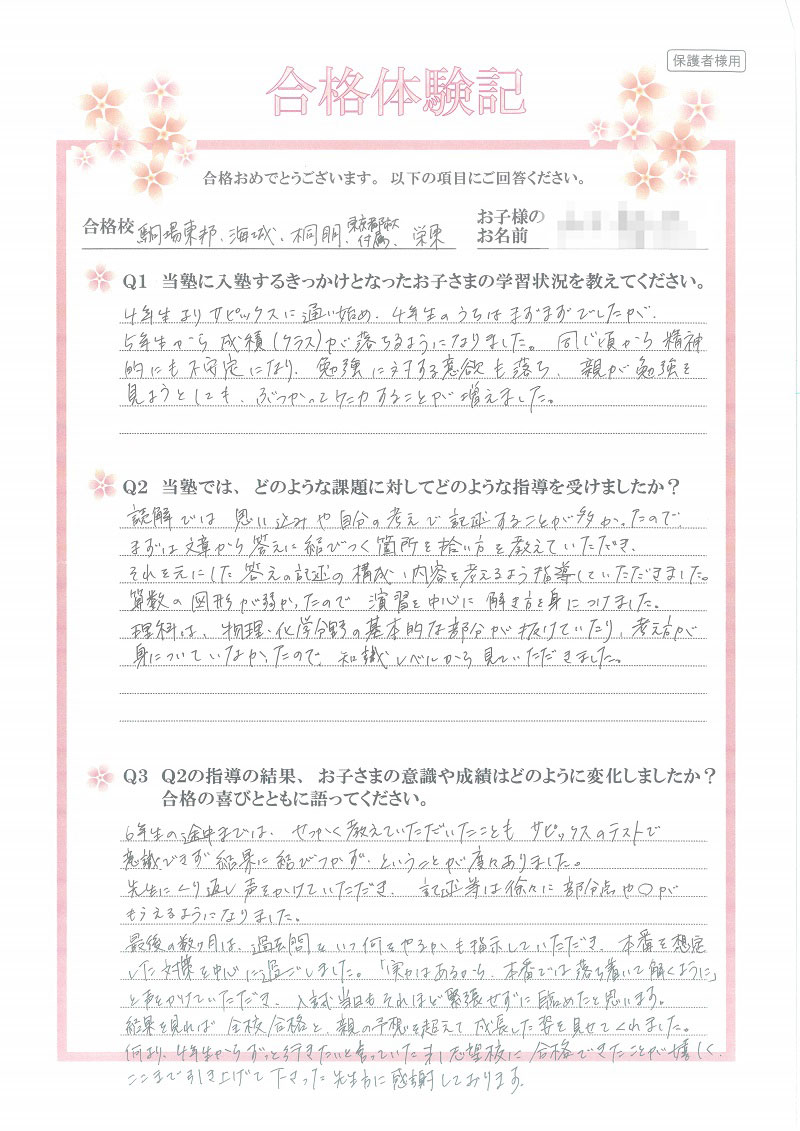 保護者様用
合格体験記
合格おめでとうございます。以下の項目にご回答ください。
合格校 駒場東邦、海城、桐朋、東京都市大付属、栄東
お子様のお名前
Q1 当塾に入塾するきっかけとなったお子さまの学習状況を教えてください。
4年生よりサピックスに通い始め、4年生のうちはまずまずでしたが、
5年生から成績(クラス)が落ちるようになりました。同じ頃から精神
的にも不安定になり、勉強に対する意欲も落ち、親が勉強を
見ようとしても、ぶつかってケンカすることが増えました。
Q2 当塾では、どのような課題に対してどのような指導を受けましたか？
読解では思い込みや自分の考えで記述することが多かったので、
まずは文章から答えに結びつく箇所を拾い方を教えていただき、
それを元にした答えの記述の構成、内容を考えるよう指導していただきました。
算数の図形が弱かったので演習を中心に解き方を身につけました。
理科は、物理・化学分野の基本的な部分が抜けていたり、考え方が
身についていなかったので、知識レベルから見ていただきました。
Q3 Q2の指導の結果、お子さまの意識や成績はどのように変化しましたか？
合格の喜びとともに語ってください。
6年生の途中までは、せっかく教えていただいたこともサピックスのテストで
意識できず結果に結びつかず、ということが度々ありました。
先生にくり返し声をかけていただき、記述等は徐々に部分点や○が
もらえるようになりました。
最後の数ヶ月は、過去問をいつ何をやるかも指示していただき、本番を想定
した対策を中心に過ごしました。「実力はあるから、本番では落ち着いて解くように」
と声をかけていただき、入試当日もそれほど緊張せずに臨めたと思います。
結果を見れば全校合格と、親の予想を超えて成長した姿を見せてくれました。
何より、4年生からずっと行きたいと言っていた第1志望校に合格できたことが嬉しく、
ここまで引き上げて下さった先生方に感謝しております。